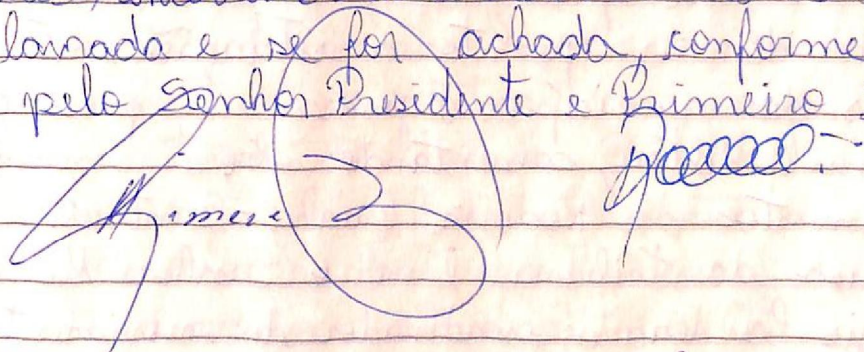 lavrada e se for achada, conforme
pelo Senhor Presidente e Primeiro